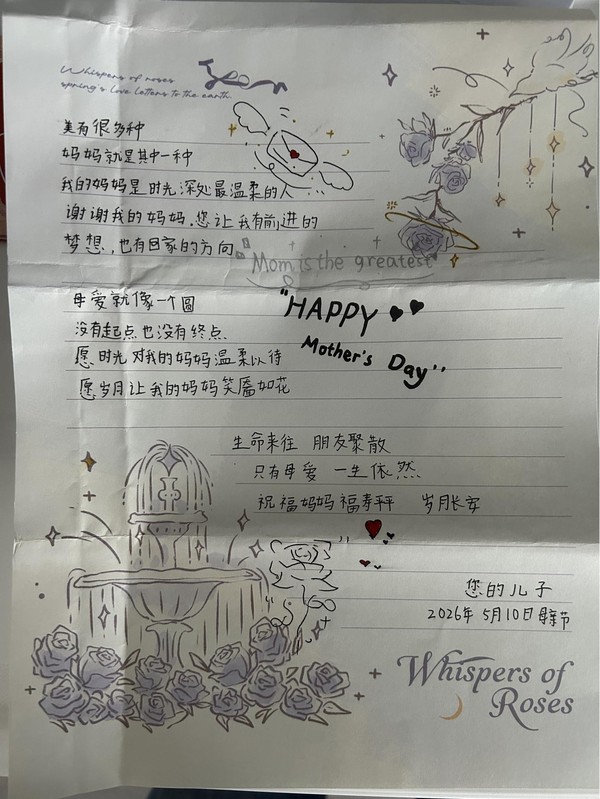 Whispers of roses
spring's love letters to the earth.
美有很多种
妈妈就是其中一种
我的妈妈是时光深处最温柔的人
谢谢我的妈妈,您让我有前进的
梦想,也有回家的方向
Mom is the greatest
母爱就像一个圆
没有起点也没有终点
愿时光对我的妈妈温柔以待
愿岁月让我的妈妈笑靥如花
"HAPPY
Mother's Day"
生命来往 朋友聚散
只有母爱 一生依然
祝福妈妈福寿 岁月长安
您的儿子
2026年5月10日母亲节
Whispers of
Roses